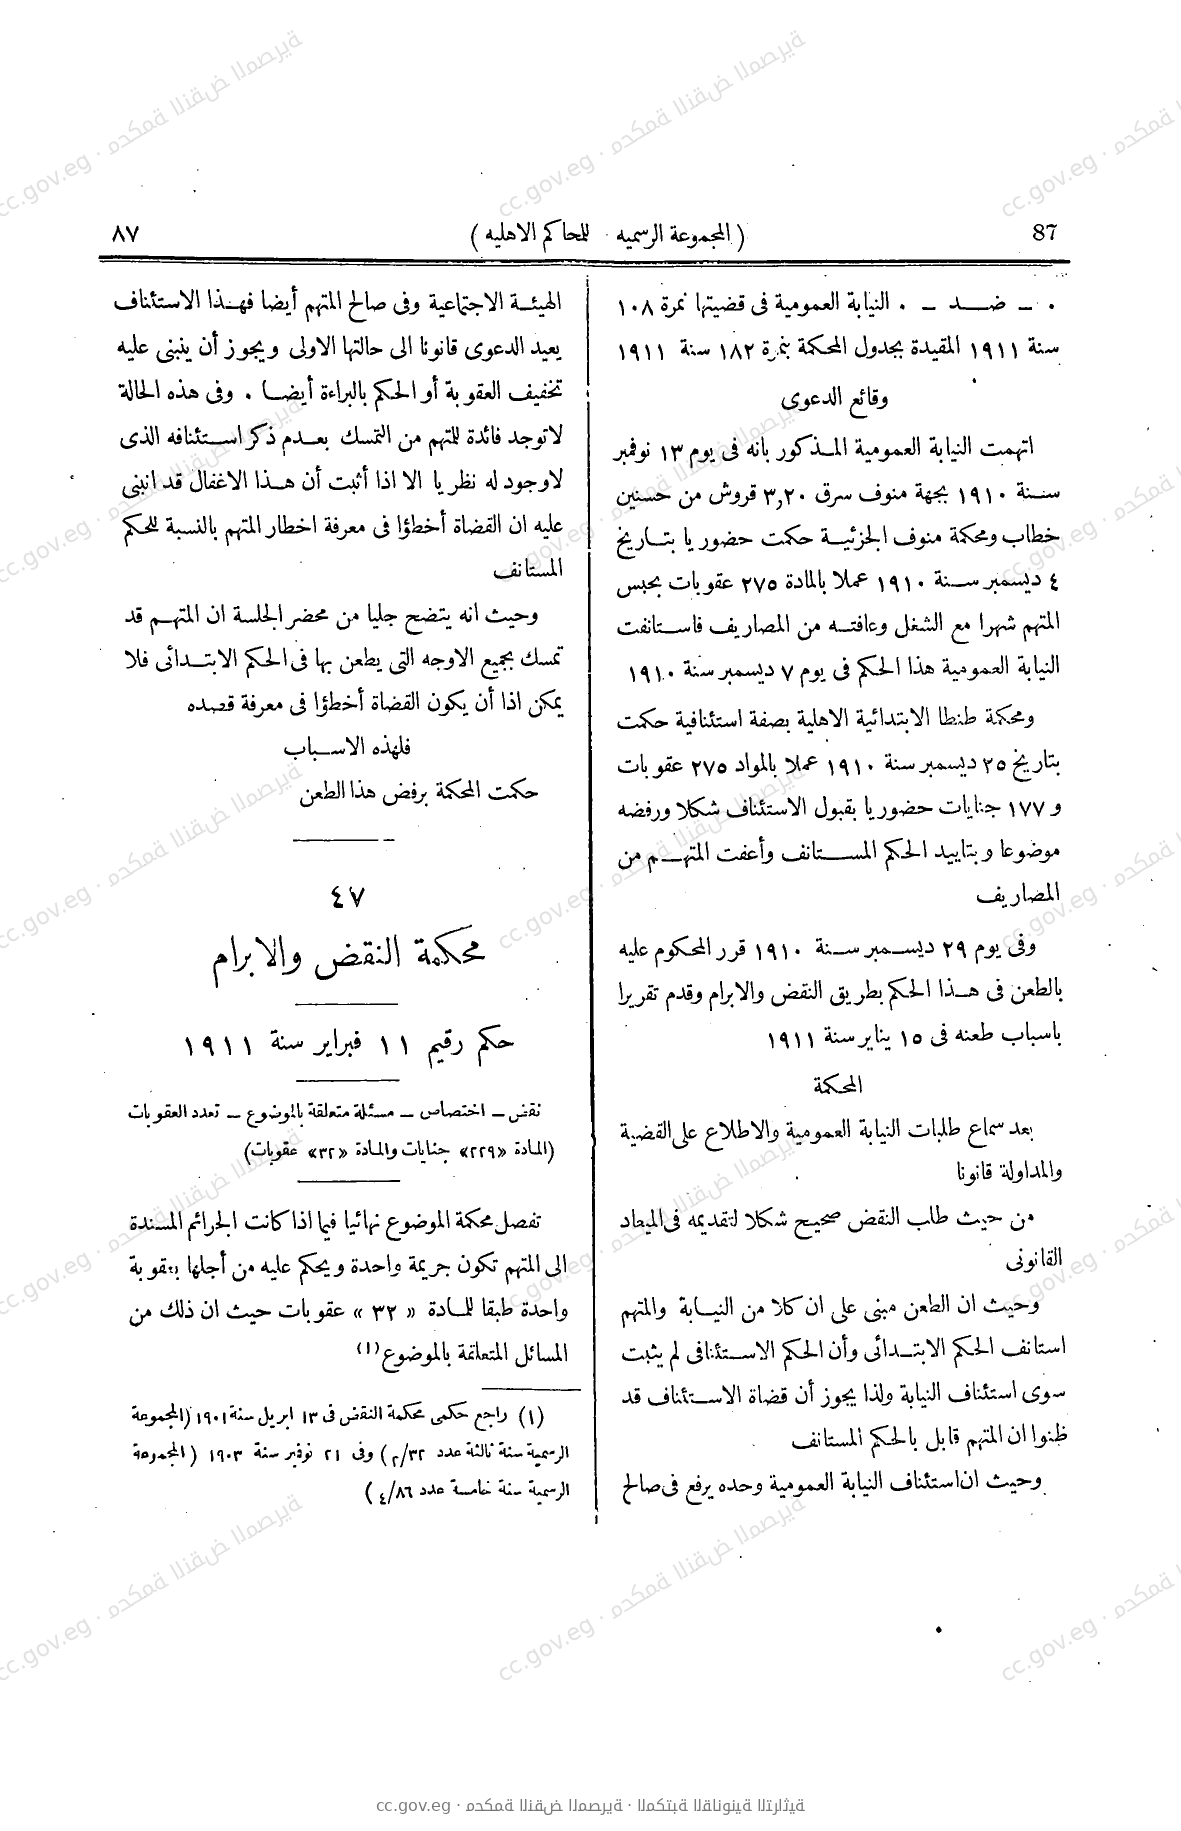 87 ( المجموعة الرسميه للمحاكم الاهليه ) ٨٧
٠ ــ ضــد ــ ٠ النيابة العمومية فى قضيتها نمرة ١٠٨
سنة ١٩١١ المقيدة بجدول المحكمة بنمرة ١٨٢ سنة ١٩١١
وقائع الدعوى
اتهمت النيابة العمومية المذكور بانه فى يوم ١٣ نوفمبر
سنة ١٩١٠ بجهة منوف سرق ٣,٢٠ قروش من حسنين
خطاب ومحكمة منوف الجزئية حكمت حضوريا بتاريخ
٤ ديسمبر سنة ١٩١٠ عملا بالمادة ٢٧٥ عقوبات بحبس
المتهم شهرا مع الشغل وعافته من المصاريف فاستانفت
النيابة العمومية هذا الحكم فى يوم ٧ ديسمبر سنة ١٩١٠
ومحكمة طنطا الابتدائية الاهلية بصفة استئنافية حكمت
بتاريخ ٢٥ ديسمبر سنة ١٩١٠ عملا بالمواد ٢٧٥ عقوبات
و ١٧٧ جنايات حضوريا بقبول الاستئناف شكلا ورفضه
موضوعا وبتاييد الحكم المستانف وأعفت المتهم من
المصاريف
وفى يوم ٢٩ ديسمبر سنة ١٩١٠ قرر المحكوم عليه
بالطعن فى هذا الحكم بطريق النقض والابرام وقدم تقريرا
باسباب طعنه فى ١٥ يناير سنة ١٩١١
المحكمة
بعد سماع طلبات النيابة العمومية والاطلاع على القضية
والمداولة قانونا
من حيث طلب النقض صحيح شكلا لتقديمه فى الميعاد
القانونى
وحيث ان الطعن مبنى على ان كلا من النيابة والمتهم
استانف الحكم الابتدائى وأن الحكم الاستئنافى لم يثبت
سوى استئناف النيابة ولذا يجوز أن قضاة الاستئناف قد
ظنوا ان المتهم قابل بالحكم المستانف
وحيث ان استئناف النيابة العمومية وحده يرفع فى صالح
الهيئة الاجتماعية وفى صالح المتهم أيضا فهذا الاستئناف
يعيد الدعوى قانونا الى حالتها الاولى ويجوز أن ينبنى عليه
تخفيف العقوبة أو الحكم بالبراءة أيضا ٠ وفى هذه الحالة
لاتوجد فائدة للمتهم من التمسك بعدم ذكر استئنافه الذى
لاوجود له نظريا الا اذا أثبت أن هذا الاغفال قد انبنى
عليه ان القضاة أخطؤا فى معرفة اخطار المتهم بالنسبة للحكم
المستانف
وحيث انه يتضح جليا من محضر الجلسة ان المتهم قد
تمسك بجميع الاوجه التى يطعن بها فى الحكم الابتدائى فلا
يمكن اذا أن يكون القضاة أخطؤا فى معرفة قصده
فلهذه الاسباب
حكمت المحكمة برفض هذا الطعن
٤٧
محكمة النقض والابرام
حكم رقيم ١١ فبراير سنة ١٩١١
نقض ــ اختصاص ــ مسئلة متعلقة بالموضوع ــ تعدد العقوبات
(المادة «٢٢٩» جنايات والمادة «٣٢» عقوبات)
تفصل محكمة الموضوع نهائيا فيما اذا كانت الجرائم المسندة
الى المتهم تكون جريمة واحدة ويحكم عليه من أجلها بعقوبة
واحدة طبقا للمادة « ٣٢ » عقوبات حيث ان ذلك من
المسائل المتعلقة بالموضوع (١)
(١) راجع حكمى محكمة النقض فى ١٣ ابريل سنة ١٩٠١ (المجموعة
الرسمية سنة ثالثة عدد ٢/٣٢) وفى ٢١ نوفمبر سنة ١٩٠٣ (المجموعة
الرسمية سنة خامسة عدد ٤/٨٦)
cc.gov.eg · محكمة النقض المصرية · المكتبة القانونية التراثية